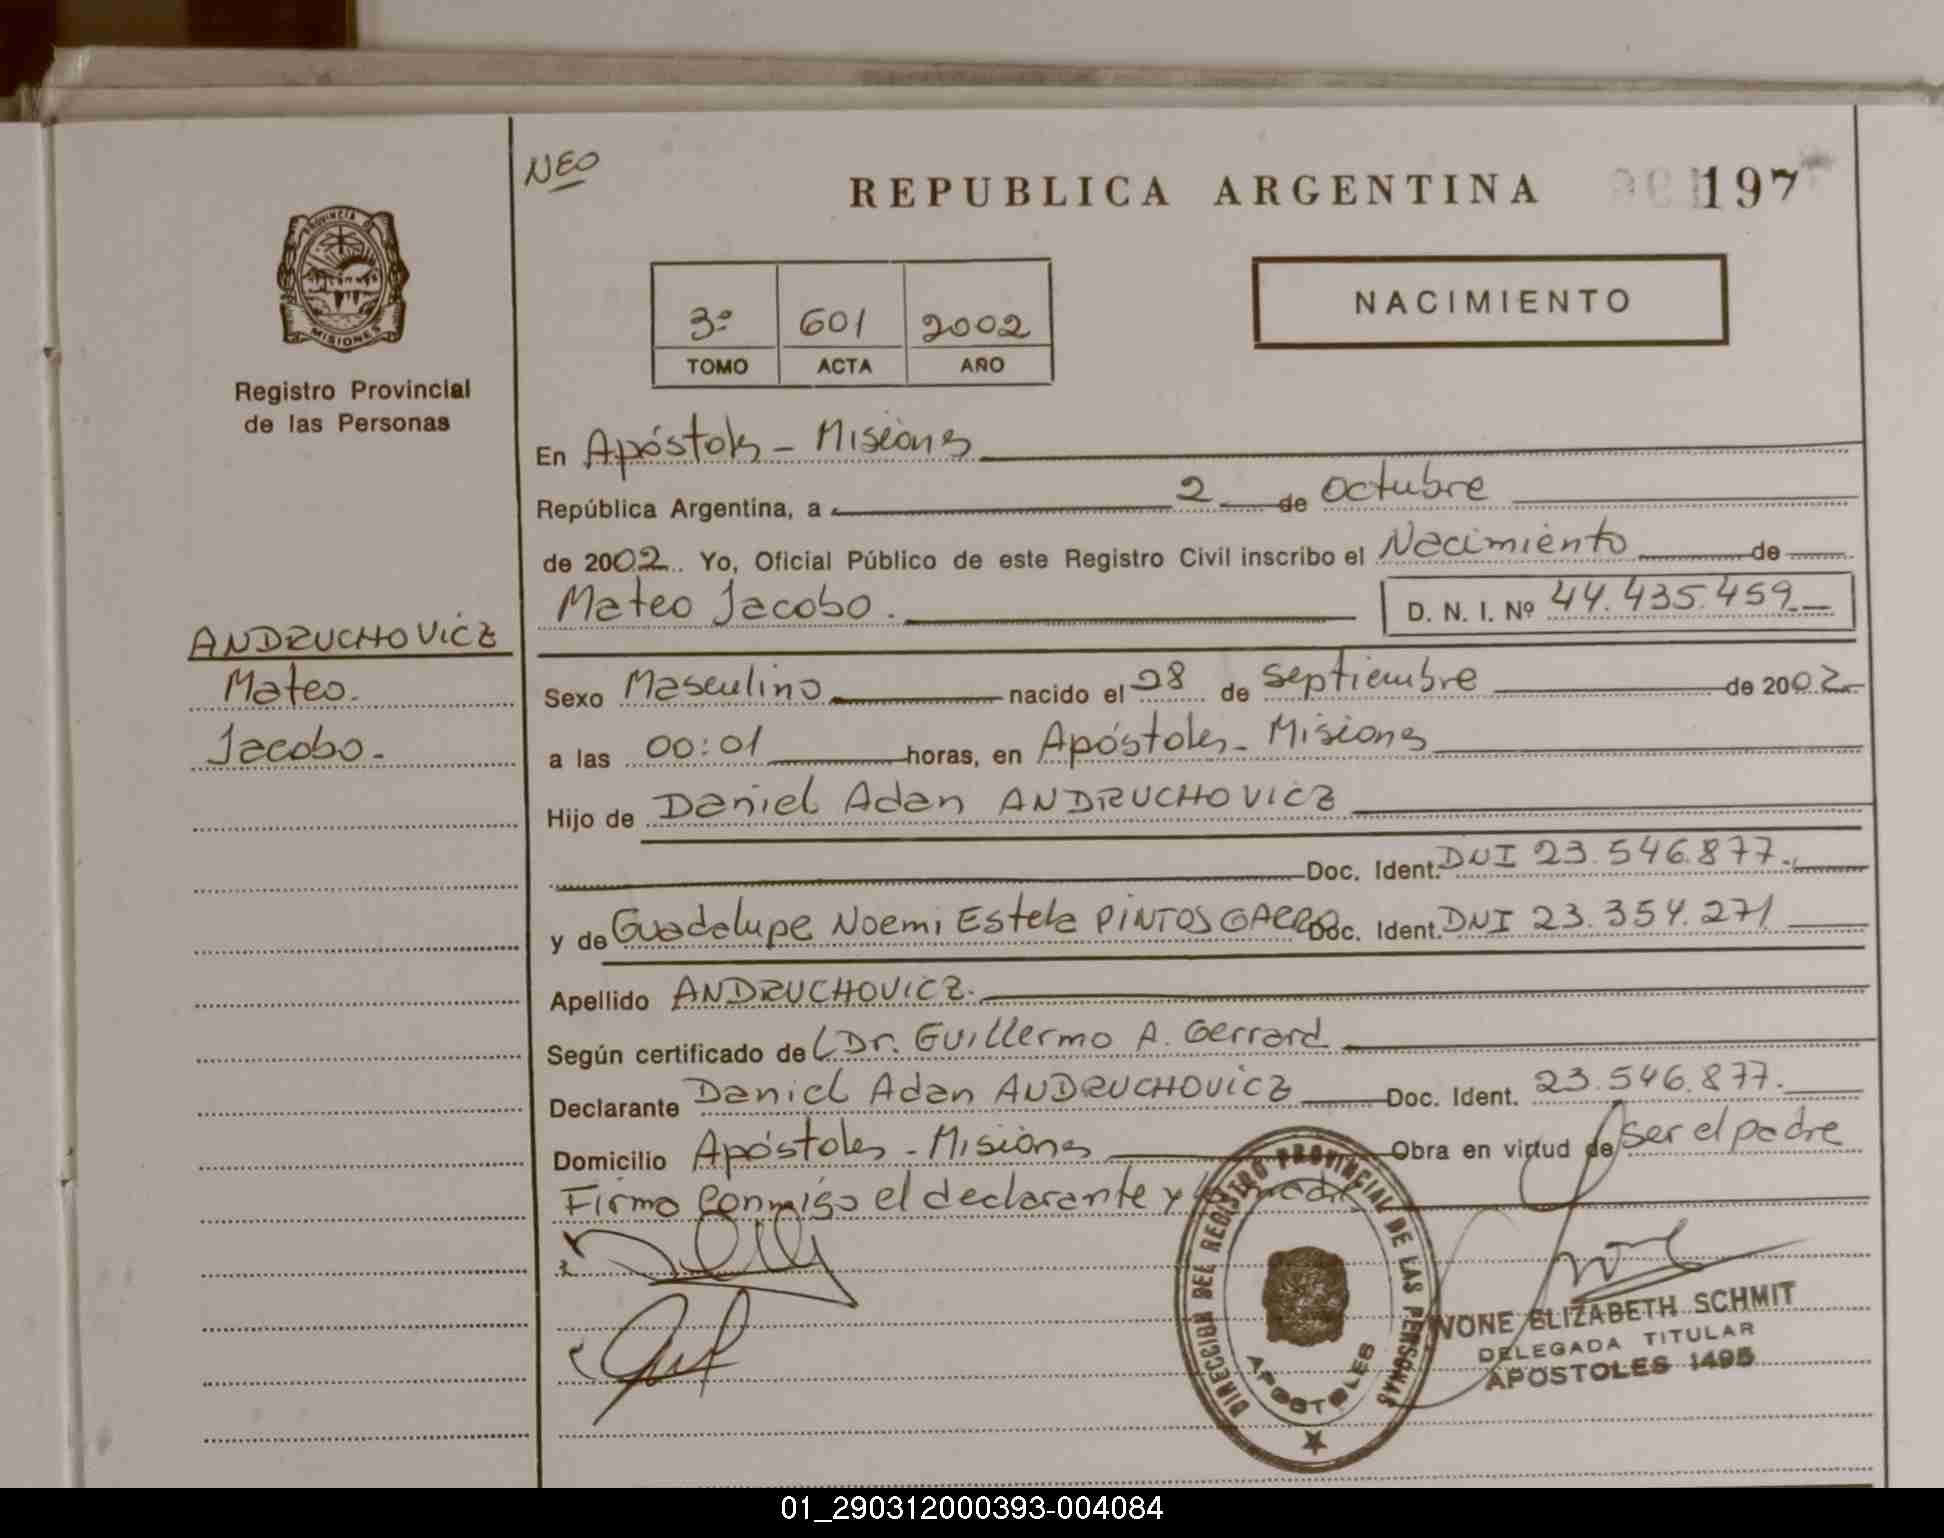 NEO
REPUBLICA ARGENTINA
197
PROVINCIA DE
MISIONES
Registro Provincial
de las Personas
3º 601 2002
TOMO ACTA AÑO
NACIMIENTO
En Apóstoles - Misiones
República Argentina, a 2 de Octubre
de 2002. Yo, Oficial Público de este Registro Civil inscribo el Nacimiento de
Mateo Jacobo. D. N. I. Nº 44.435.459
ANDRUCHOVICZ
Mateo.
Jacobo.-
Sexo Masculino nacido el 28 de septiembre de 2002
a las 00:01 horas, en Apóstoles - Misiones
Hijo de Daniel Adan ANDRUCHOVICZ
Doc. Ident. DNI 23.546.877.
y de Guadalupe Noemi Estela PINTOS GARRO Doc. Ident. DNI 23.354.271
Apellido ANDRUCHOVICZ.
Según certificado del Dr. Guillermo A. Gerrard
Declarante Daniel Adan ANDRUCHOVICZ Doc. Ident. 23.546.877.
Domicilio Apóstoles - Misiones Obra en virtud de ser el padre
Firmo Conmigo el declarante y la madre
DIRECCION DEL REGISTRO PROVINCIAL DE LAS PERSONAS
APOSTOLES
IVONE ELIZABETH SCHMIT
DELEGADA TITULAR
APOSTOLES 1495
01_290312000393-004084